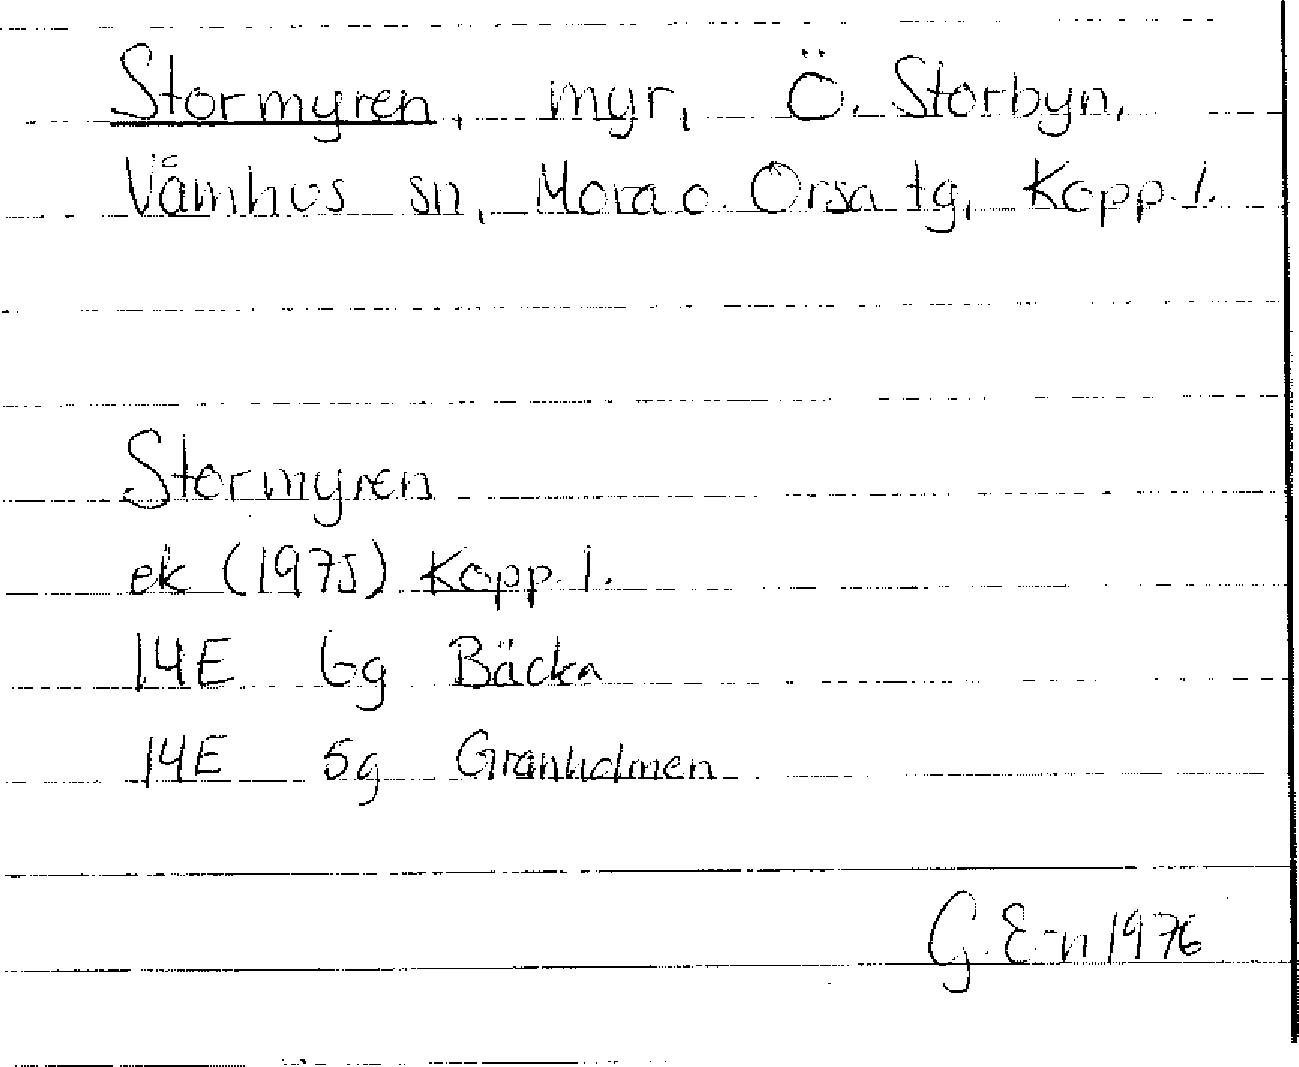 Stormyren, myr, Ö. Storbyn,
Våmhus sn, Mora o. Orsa tg, Kopp. l.
Stormyren
ek (1975) Kopp. l.
14E 6g Bäcka
14E 5g Granholmen
G. E-n 1976